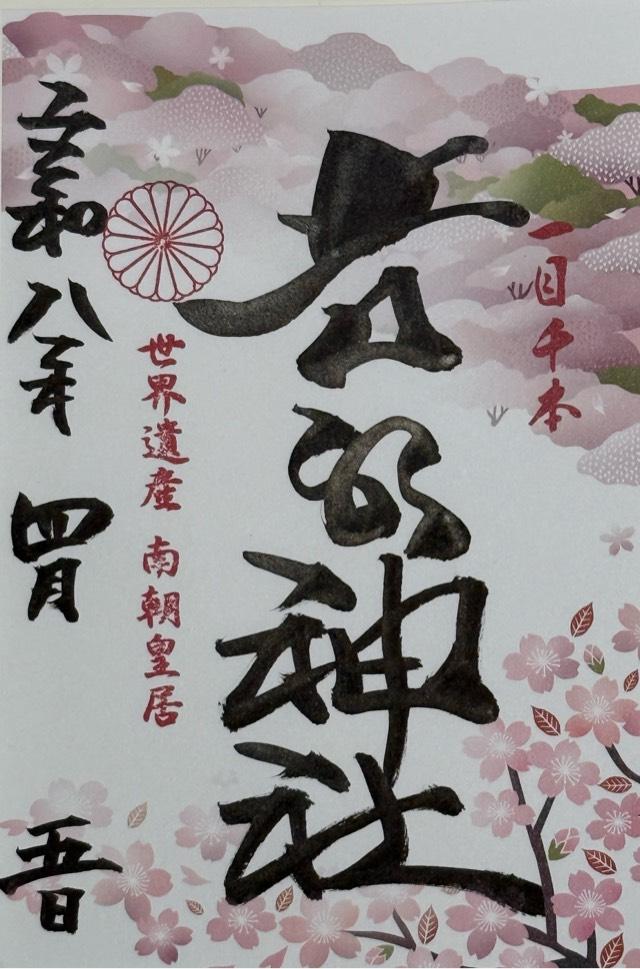 一目千本
吉野神社
世界遺産 南朝皇居
令和八年 四月 五日